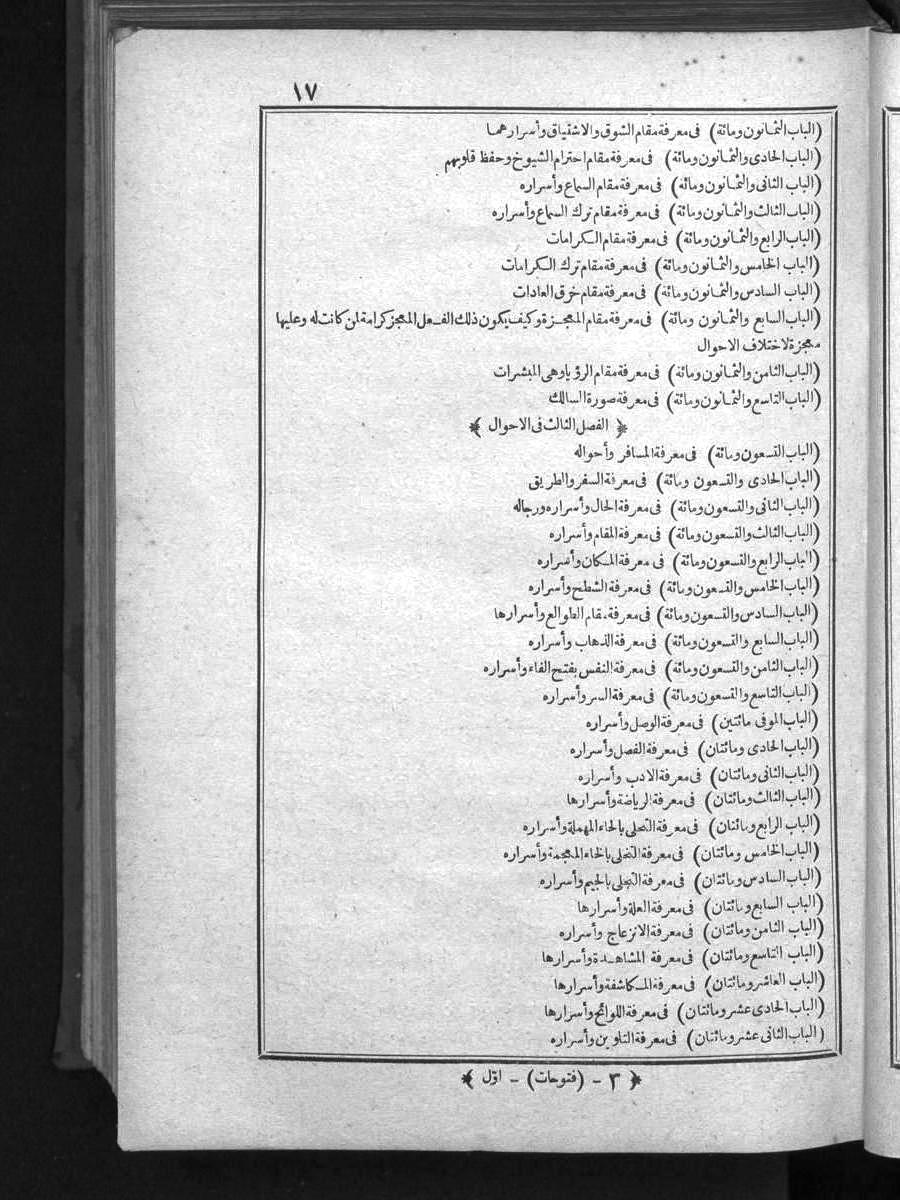 ١٧
(الباب الثمانون ومائة) فى معرفة مقام الشوق والاشتياق وأسرارهما
(الباب الحادى والثمانون ومائة) فى معرفة مقام احترام الشيوخ وحفظ قلوبهم
(الباب الثانى والثمانون ومائة) فى معرفة مقام السماع وأسراره
(الباب الثالث والثمانون ومائة) فى معرفة مقام ترك السماع وأسراره
(الباب الرابع والثمانون ومائة) فى معرفة مقام الكرامات
(الباب الخامس والثمانون ومائة) فى معرفة مقام ترك الكرامات
(الباب السادس والثمانون ومائة) فى معرفة مقام خرق العادات
(الباب السابع والثمانون ومائة) فى معرفة مقام المعجزة وكيف يكون ذلك الفعل المعجز كرامة لمن كانت له وعليها
معجزة لاختلاف الاحوال
(الباب الثامن والثمانون ومائة) فى معرفة مقام الرؤيا وهى المبشرات
(الباب التاسع والثمانون ومائة) فى معرفة صورة السالك
﴿ الفصل الثالث فى الاحوال ﴾
(الباب التسعون ومائة) فى معرفة المسافر وأحواله
(الباب الحادى والتسعون ومائة) فى معرفة السفر والطريق
(الباب الثانى والتسعون ومائة) فى معرفة الحال وأسراره ورجاله
(الباب الثالث والتسعون ومائة) فى معرفة المقام وأسراره
(الباب الرابع والتسعون ومائة) فى معرفة المكان وأسراره
(الباب الخامس والتسعون ومائة) فى معرفة الشطح وأسراره
(الباب السادس والتسعون ومائة) فى معرفة مقام الطوالع وأسرارها
(الباب السابع والتسعون ومائة) فى معرفة الذهاب وأسراره
(الباب الثامن والتسعون ومائة) فى معرفة النفس بفتح الفاء وأسراره
(الباب التاسع والتسعون ومائة) فى معرفة السر وأسراره
(الباب الموفى مائتين) فى معرفة الوصل وأسراره
(الباب الحادى ومائتان) فى معرفة الفصل وأسراره
(الباب الثانى ومائتان) فى معرفة الادب وأسراره
(الباب الثالث ومائتان) فى معرفة الرياضة وأسرارها
(الباب الرابع ومائتان) فى معرفة التحلى بالحاء المهملة وأسراره
(الباب الخامس ومائتان) فى معرفة التخلى بالخاء المعجمة وأسراره
(الباب السادس ومائتان) فى معرفة التجلى بالجيم وأسراره
(الباب السابع ومائتان) فى معرفة العلة وأسرارها
(الباب الثامن ومائتان) فى معرفة الانزعاج وأسراره
(الباب التاسع ومائتان) فى معرفة المشاهدة وأسرارها
(الباب العاشر ومائتان) فى معرفة المكاشفة وأسرارها
(الباب الحادى عشر ومائتان) فى معرفة اللوائح وأسرارها
(الباب الثانى عشر ومائتان) فى معرفة التلوين وأسراره
﴿ ٣ - (فتوحات) - اول ﴾